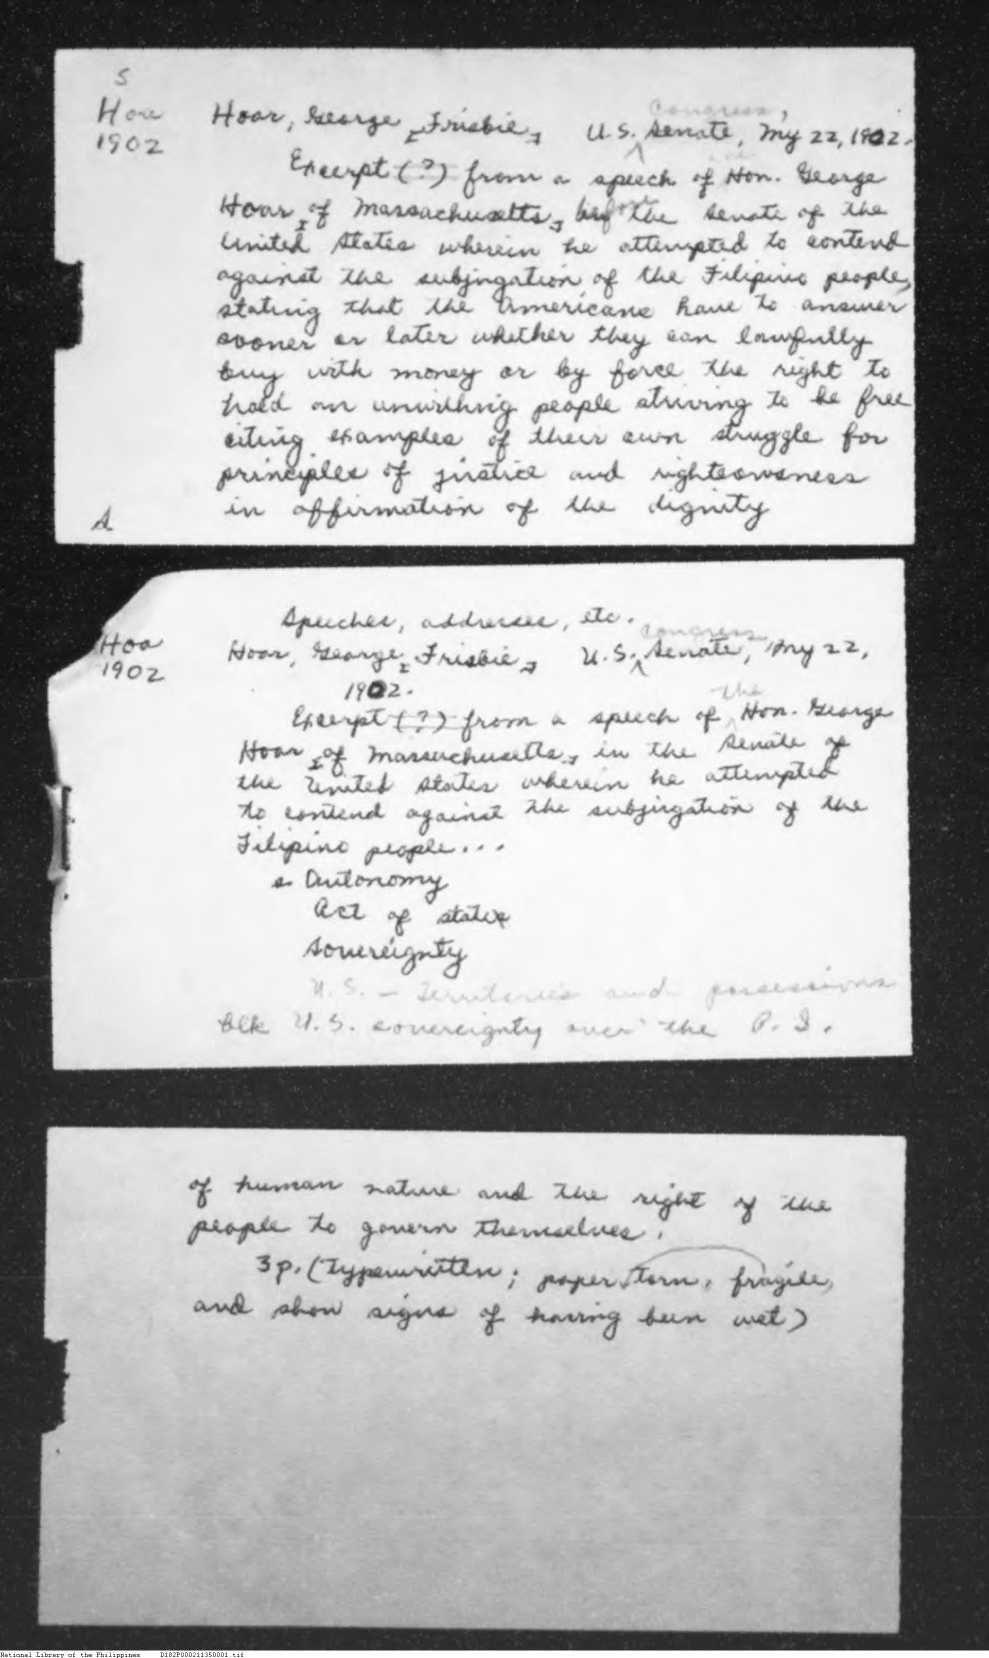 S
Hoar
1902
Congress,
Hoar, George [Frisbie] U.S. Senate, My 22, 1902.
Excerpt (?) from a speech of Hon. George
Hoar [of Massachusetts] before the Senate of the
United States wherein he attempted to contend
against the subjugation of the Filipino people,
stating that the Americans have to answer
sooner or later whether they can lawfully
buy with money or by force the right to
hold an unwilling people striving to be free
citing examples of their own struggle for
principles of justice and righteousness
in affirmation of the dignity
A
Speeches, addresses, etc.
Hoa
1902
Congress
Hoar, George [Frisbie] U.S. Senate, My 22,
1902.
the
Excerpt (?) from a speech of Hon. George
Hoar [of Massachusetts] in the Senate of
the United States wherein he attempted
to contend against the subjugation of the
Filipino people...
s- Autonomy
Act of state
Sovereignty
U.S. - Territories and possessions
blk U.S. sovereignty over the P.I.
of human nature and the right of the
people to govern themselves.
3 p. (typewritten; paper torn, fragile,
and show signs of having been wet)
National Library of the Philippines D182P000211350001.tif